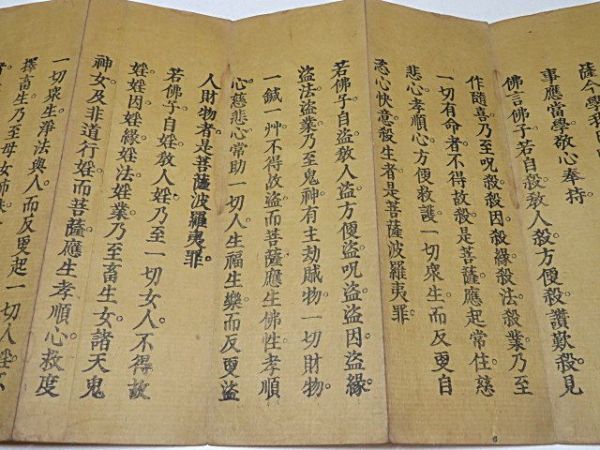 薩今學我
事應當學敬心奉持
佛言佛子若自殺教人殺方便殺讚歎殺見
作隨喜乃至呪殺殺因殺緣殺法殺業乃至
一切有命者不得故殺是菩薩應起常住慈
悲心孝順心方便救護一切衆生而反更自
恣心快意殺生者是菩薩波羅夷罪
若佛子自盜教人盜方便盜呪盜盜因盜緣
盜法盜業乃至鬼神有主劫賊物一切財物
一鍼一艸不得故盜而菩薩應生佛性孝順
心慈悲心常助一切人生福生樂而反更盜
人財物者是菩薩波羅夷罪
若佛子自婬教人婬乃至一切女人不得故
婬婬因婬緣婬法婬業乃至畜生女諸天鬼
神女及非道行婬而菩薩應生孝順心救度
一切衆生淨法與人而反更起一切人婬不
擇畜生乃至母女姊妹